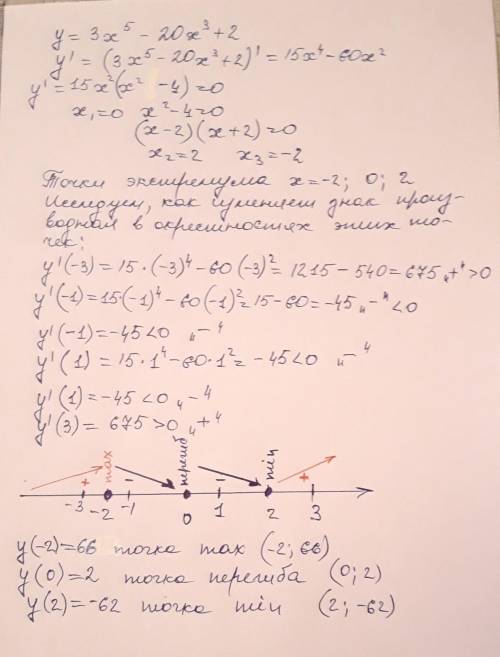 y = 3x⁵ - 20x³ + 2
y' = (3x⁵ - 20x³ + 2)' = 15x⁴ - 60x²
y' = 15x²(x² - 4) = 0
x₁ = 0 x² - 4 = 0
(x - 2)(x + 2) = 0
x₂ = 2 x₃ = -2
Точки экстремума x = -2; 0; 2
Исследуем, как изменяет знак произ-
водная в окрестностях этих то-
чек:
y'(-3) = 15 · (-3)⁴ - 60(-3)² = 1215 - 540 = 675 „+" > 0
y'(-1) = 15(-1)⁴ - 60(-1)² = 15 - 60 = -45 „-" < 0
y'(-1) = -45 < 0 „-"
y'(1) = 15 · 1⁴ - 60 · 1² = -45 < 0 „-"
y'(1) = -45 < 0 „-"
y'(3) = 675 > 0 „+"
max перегиб min
+ - - +
-3 -2 -1 0 1 2 3
y(-2) = 66 точка max (-2; 66)
y(0) = 2 точка перегиба (0; 2)
y(2) = -62 точка min (2; -62)